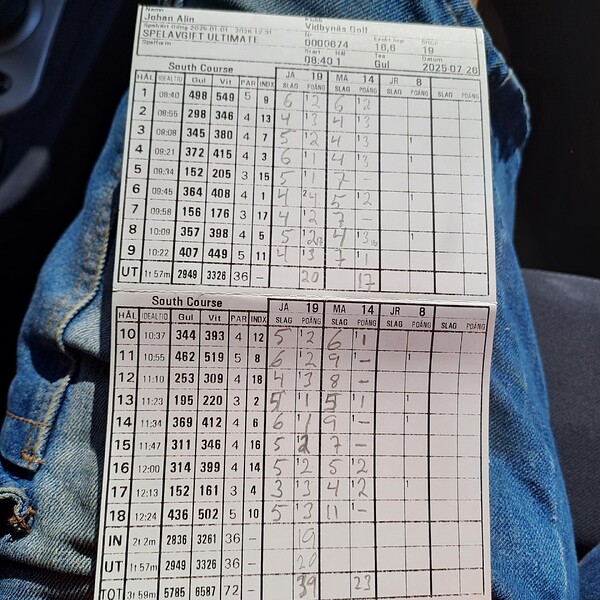 Namn
Johan Alin
Klubb
Vidbynäs Golf
SPELAVGIFT ULTIMATE
Nr
0000674
Exakt hcp
16,6
SHCP
19
Spelform
Start Hål
08:40 1
Tee
Gul
Datum
2025.07.26
South Course JA 19 MA 14 JR 8
HÅL IDEALTID Gul Vit PAR INDX SLAG POÄNG SLAG POÄNG SLAG POÄNG SLAG POÄNG
1 08:40 498 549 5 9 6 '2 6 '2
2 08:55 298 346 4 13 4 '3 4 '3
3 09:08 345 380 4 7 5 '2 4 '3 '
4 09:21 372 415 4 3 6 '1 4 '3 '
5 09:34 152 205 3 15 5 '1 7 -
6 09:45 364 408 4 1 4 "4 5 '2 '
7 09:58 156 176 3 17 4 '2 7 -
8 10:09 357 398 4 5 5 '2 4 '3 '
9 10:22 407 449 5 11 4 '3 7 '1
UT 1t 57m 2949 3326 36 - 20 17
South Course JA 19 MA 14 JR 8
HÅL IDEALTID Gul Vit PAR INDX SLAG POÄNG SLAG POÄNG SLAG POÄNG SLAG POÄNG
10 10:37 344 393 4 12 5 '2 6 '1
11 10:55 462 519 5 8 6 '2 9 '- '
12 11:10 253 309 4 18 4 '3 8 -
13 11:23 195 220 3 2 5 '1 5 '1 '
14 11:34 369 412 4 6 6 '1 9 '- '
15 11:47 311 346 4 16 5 '2 7 -
16 12:00 314 399 4 14 5 '2 5 '2
17 12:13 152 161 3 4 3 '3 4 '2 '
18 12:24 436 502 5 10 5 '3 11 '-
IN 2t 2m 2836 3261 36 - 19
UT 1t 57m 2949 3326 36 - 20
TOT 3t 59m 5785 6587 72 - 39 23